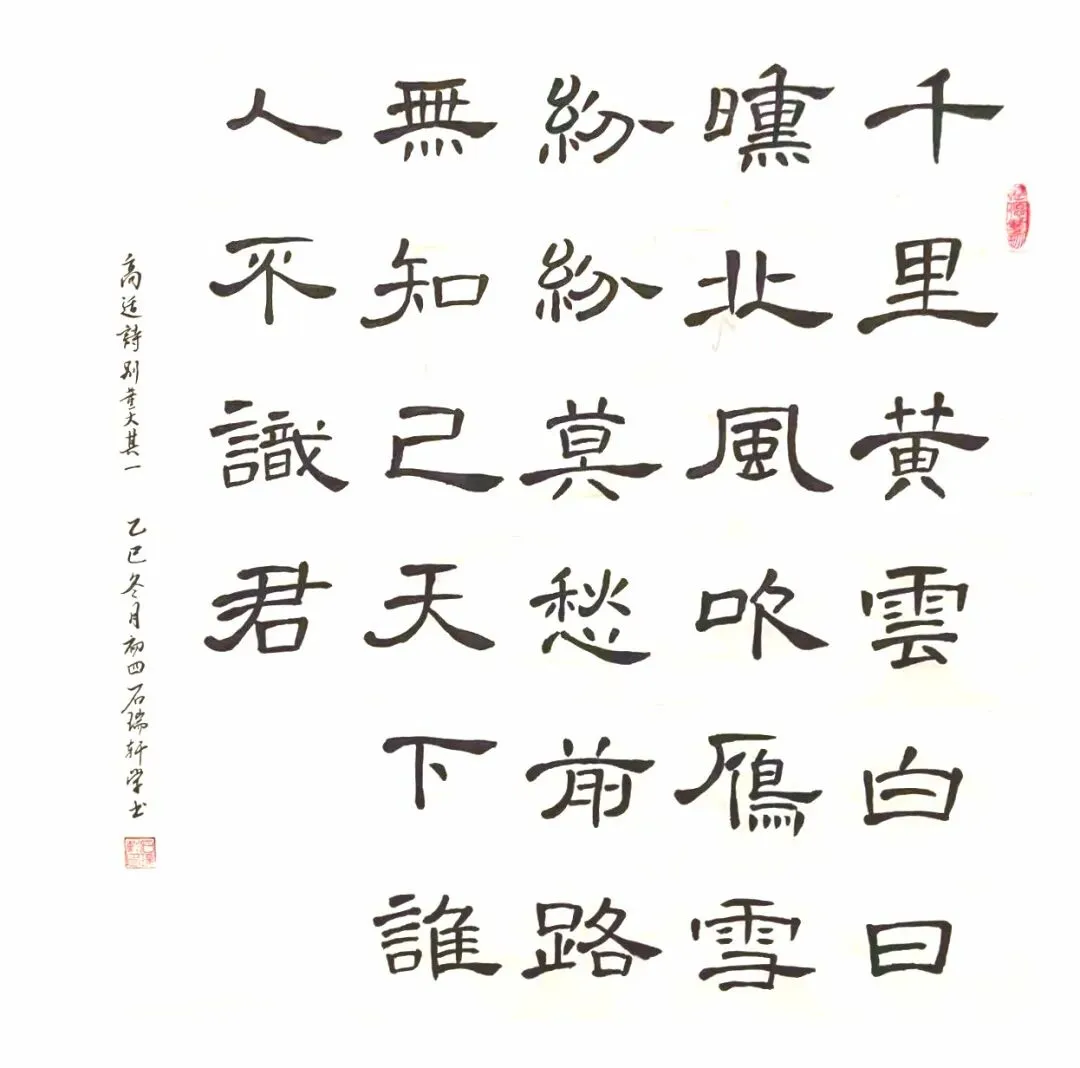 千里黄雲白日
曛北風吹雁雪
紛紛莫愁前路
無知己天下誰
人不識君
高适詩別董大其一 乙巳冬月初四石瑞軒學书